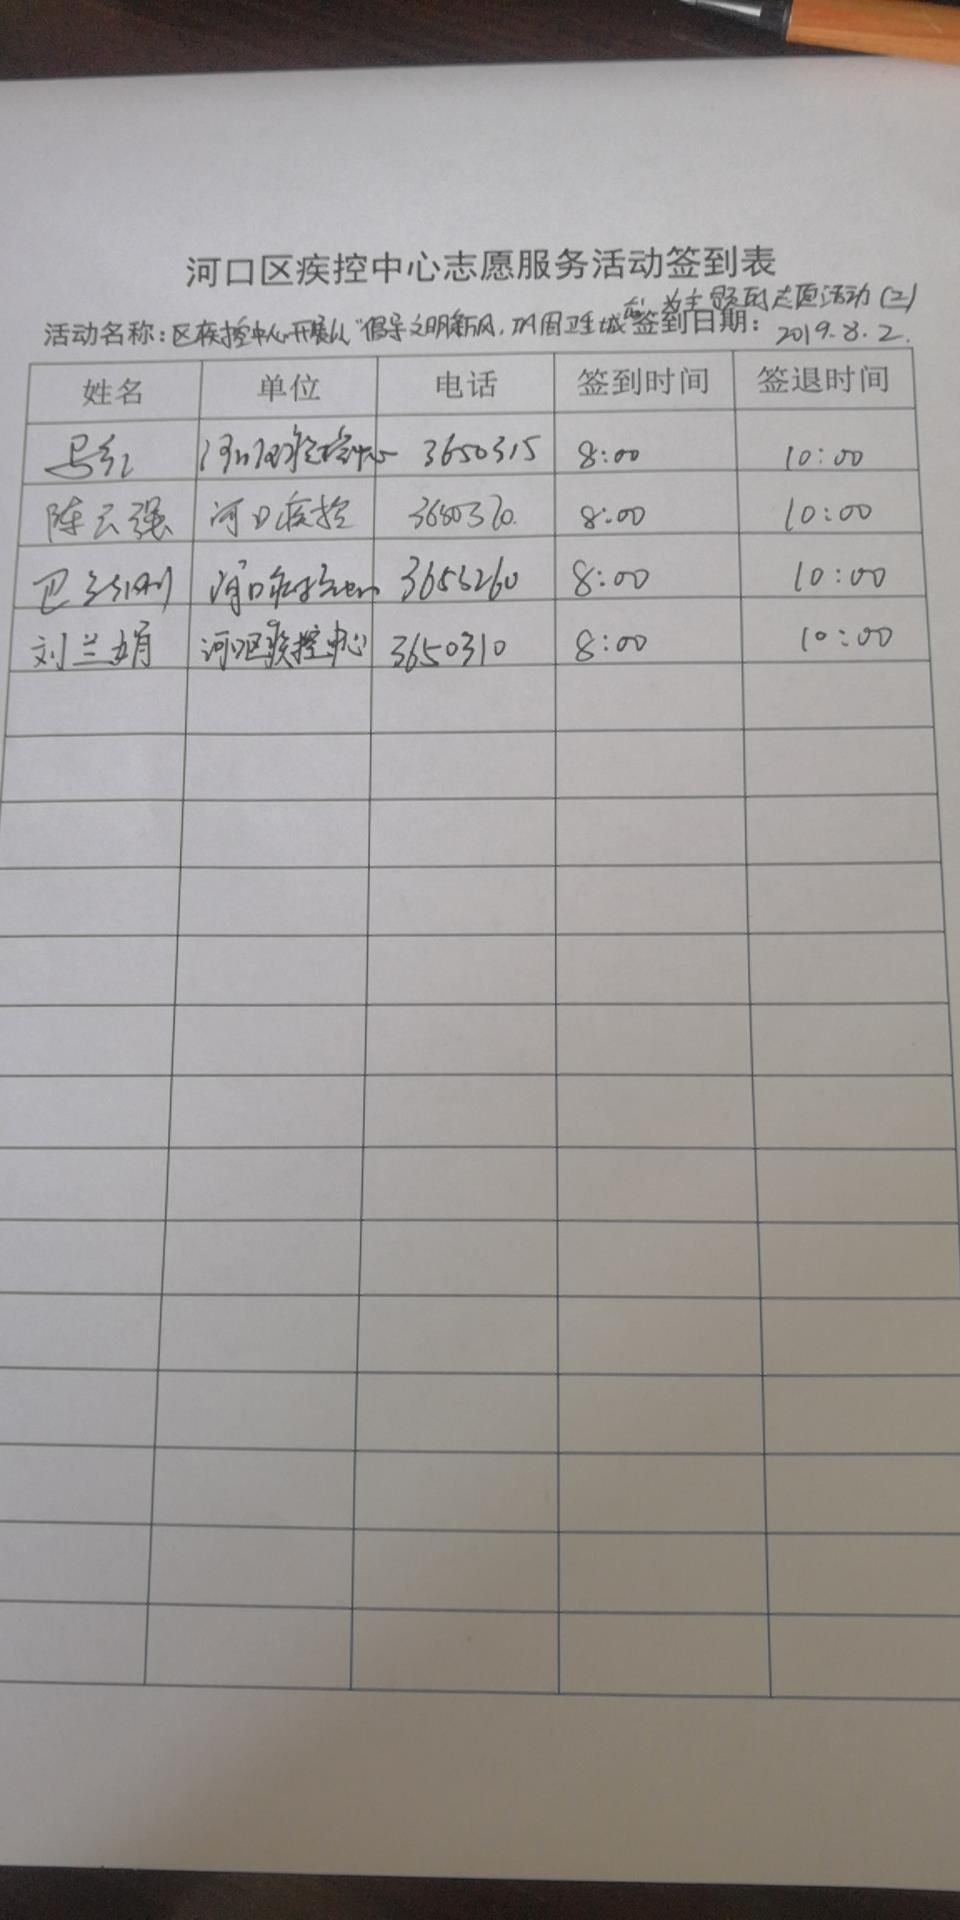 河口区疾控中心志愿服务活动签到表
活动名称：区疾控中心开展以“倡导文明新风，巩固卫生城 为主题的志愿活动（二）
签到日期：2019.8.2.
姓名 单位 电话 签到时间 签退时间
马红 河口区疾控中心 3650315 8:00 10:00
陈云强 河口疾控 8:00 10:00
巴 河口 3653260 8:00 10:00
刘兰娟 河口区疾控中心 3650310 8:00 10:00